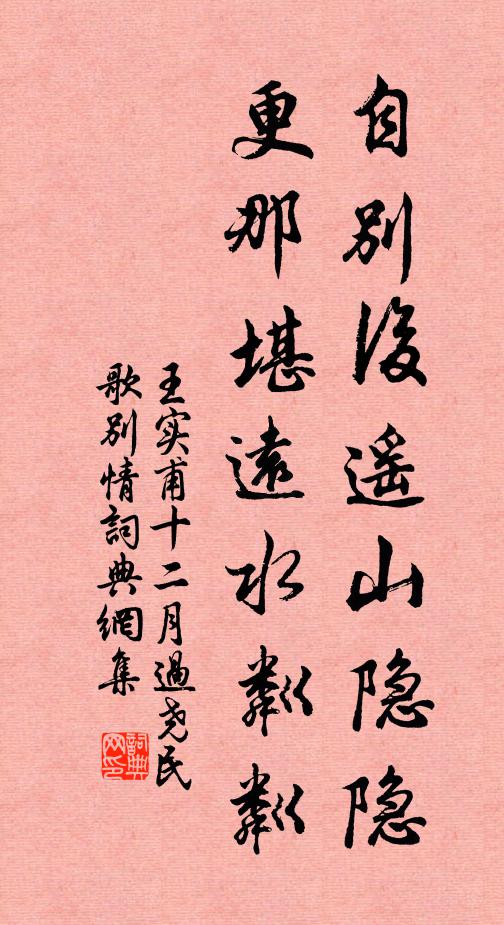 自別後遥山隐隐
更那堪遠水粼粼
王实甫十二月過尧民
歌别情詞典網集
詞典網印